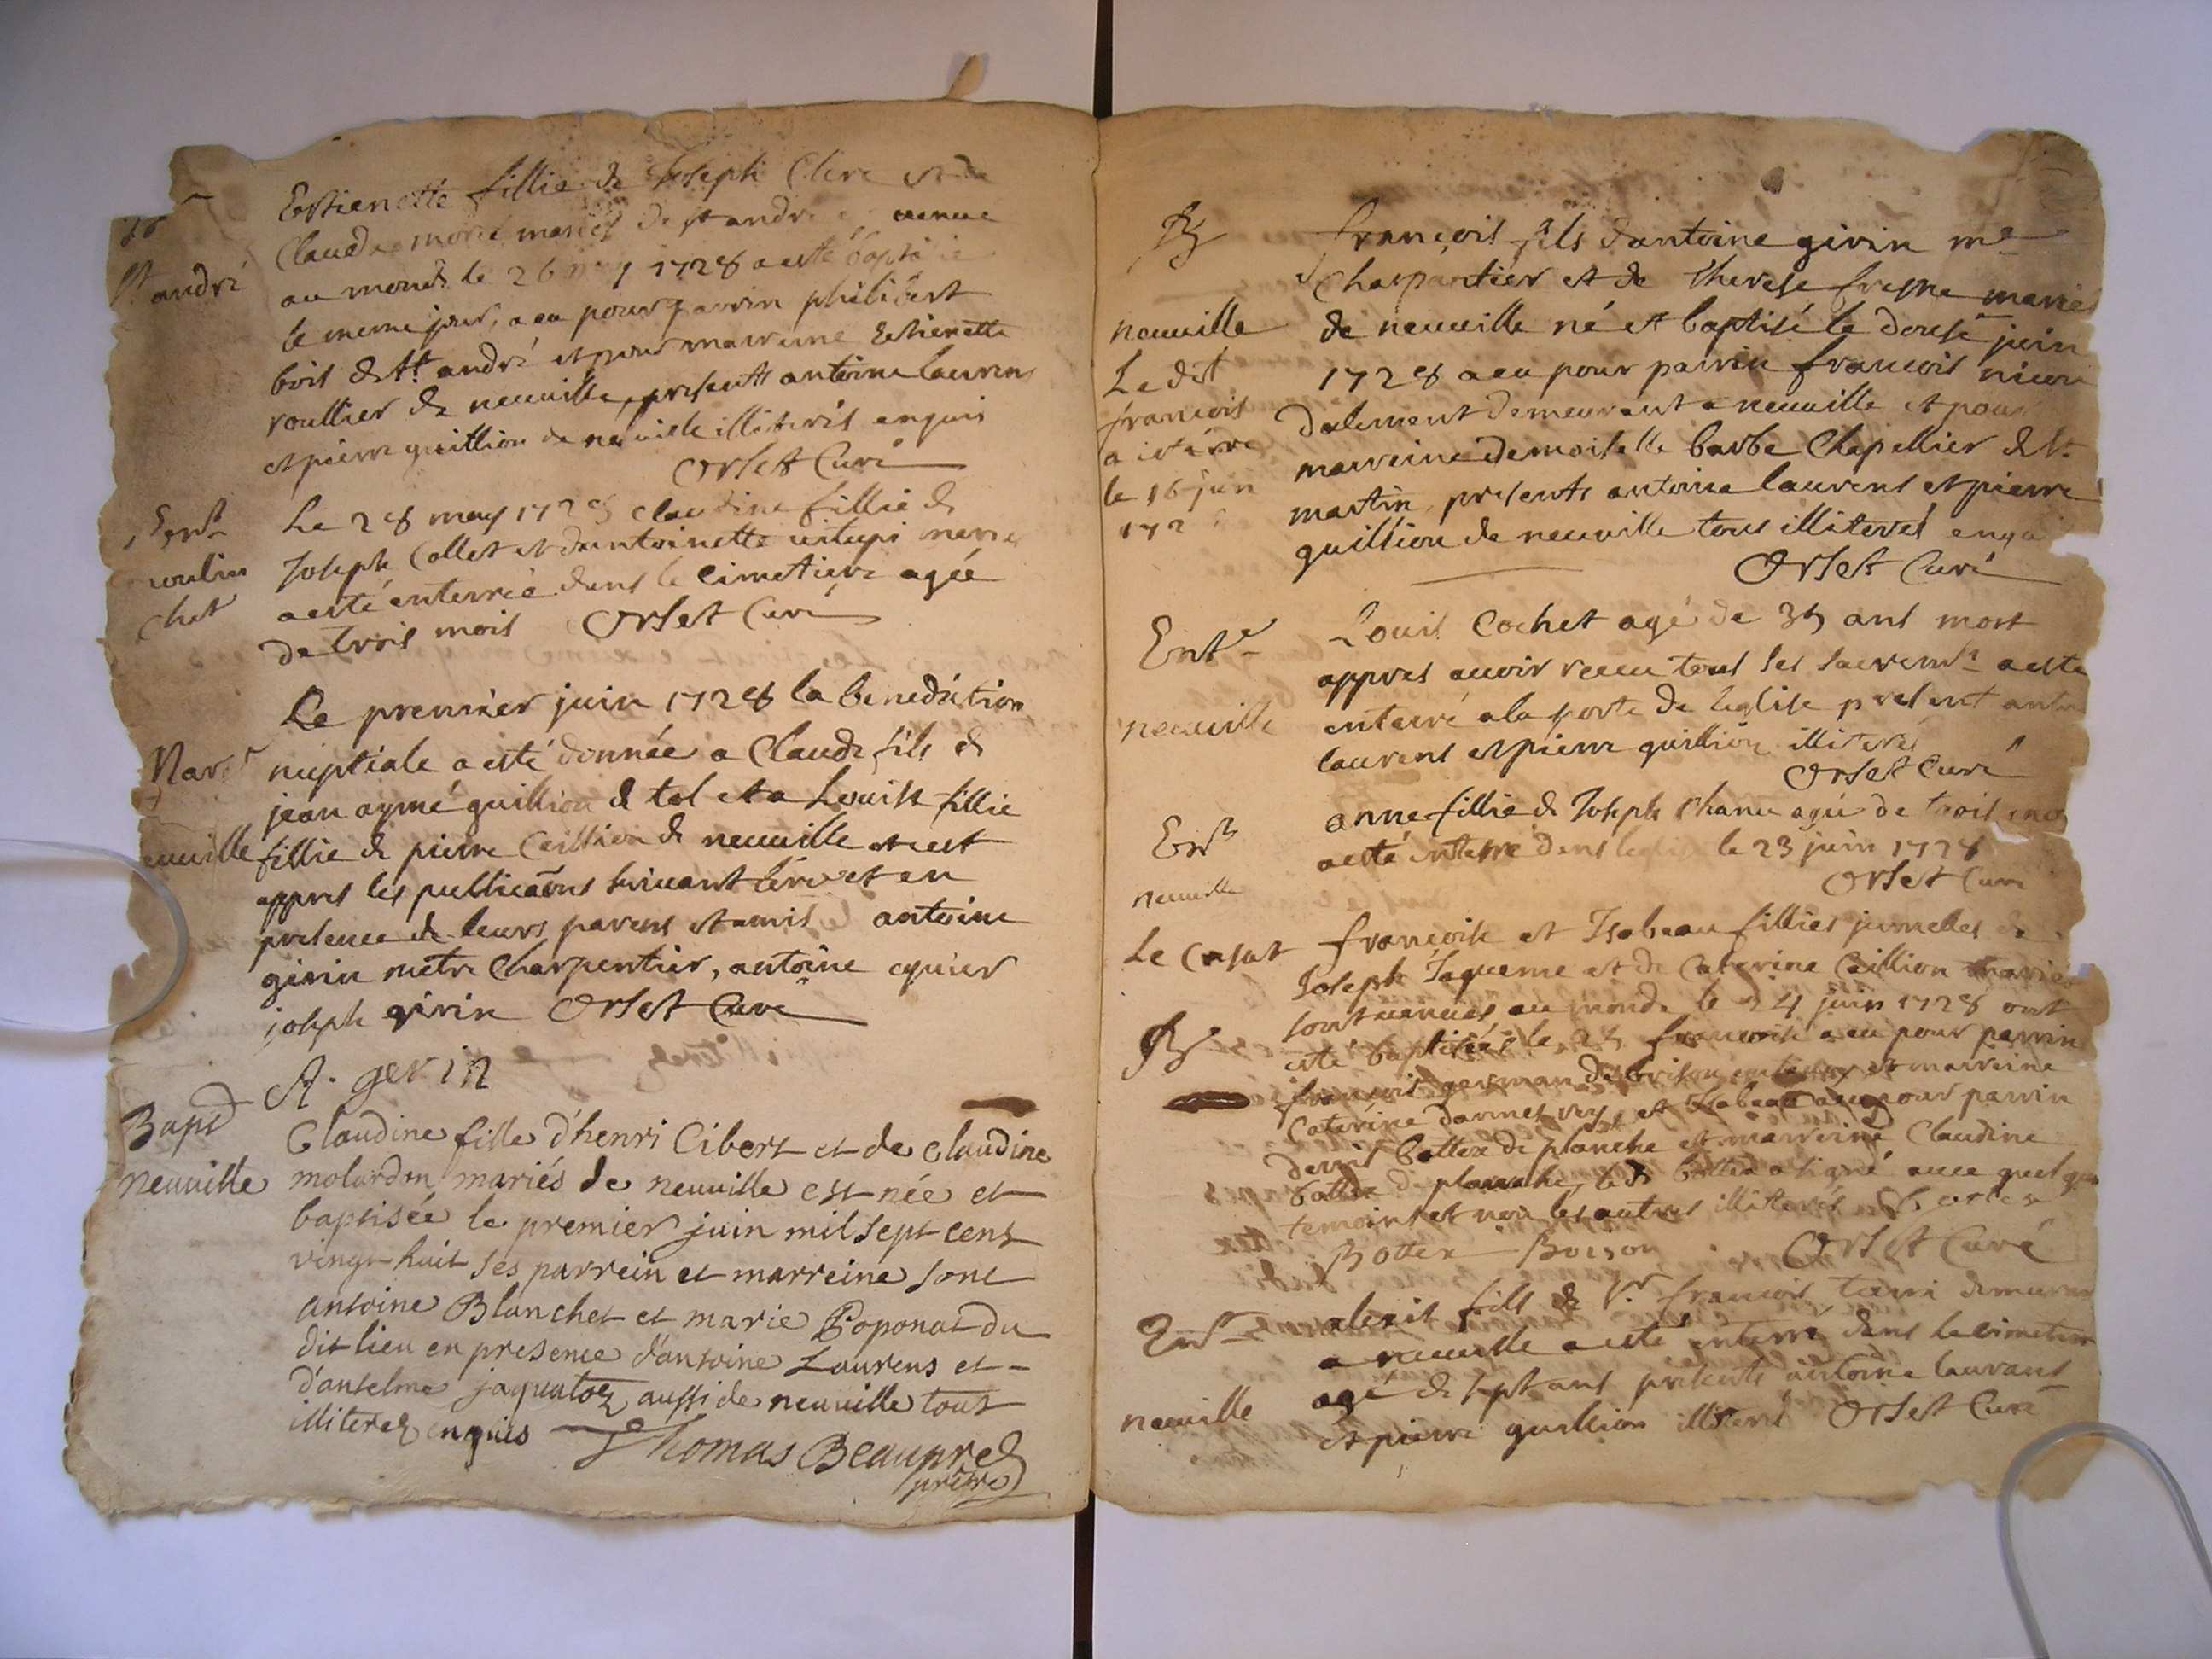 Estienette fillie de Joseph Clerc et de
Claudine morel mariés de st andré est venue
St andré
au monde le 26 may 1728 a esté baptisée
le meme jour, a eu pour parrin philibert
bois de st andré et pour marreine Estienette
roullier de neuville, presents antoine laurens
et pierre guillion de neuville illiterés enquis
Orset Curé
Ent
Le 28 may 1728 claudine fillie de
Joseph Collet et dantoinette mariés
moulin
chet
a esté enterrée dans le cimetiere agée
de trois mois Orset Curé
Le premier juin 1728 la benediction
Mar
nuptiale a esté donnée a Claude fils de
jean aymé guillion de tol et a Louise fillie
euville
fillie de pierre Caillion de neuville et est
appres les publicaons suivant et en
presence de leurs parens et amis antoine
girin metre Charpentier, antoine
joseph girin Orset Curé
A. gerin
Bapt
neuville
Claudine fille d'henri Cibert et de claudine
molardon mariés de neuville est née et
baptisée le premier juin mil sept cent
vingt huit ses parrein et marreine sont
antoine Blanchet et marie Poponat du
dit lieu en presence d'antoine Laurens et
d'anselme jaquatoz aussi de neuville tous
illiterez enquis
Thomas Beauprez
prêtre
B
françois fils dantoine girin me
Charpantier et de therese fresne mariés
neuville
de neuville né et baptisé le douse juin
Le dit
francois
a
le 16 juin
172
1728 a eu pour parrin francois
dalement demeurant a neuville et pour
marreine demoiselle barbe Chapellier de st
martin, presents antoine laurens et pierre
guillion de neuville tous illiterés
Orset Curé
Ent
Louis Cochet agé de 35 ans mort
appres avoir receu tous ses sacremts a esté
neuville
enterré a la porte de leglise present
laurens et pierre guillion illiterés
Orset Curé
Ent
neuville
anne fillie de Joseph Chanu agée de trois
a esté enterré dans leglise le 23 juin 1728
Orset Curé
Le Casat
françoise et Isabeau fillies jumelles de
Joseph Jaqueme et de Caterine Caillion mariés
sont venues au monde le 24 juin 1728 ont
B
esté baptisées le 25 francoise a eu pour parrin
francois german et marreine
Caterine et Isabeau a eu pour parrin
denis bottex de planche et marreine Claudine
bottex de planche, le dt bottex a signé avec quelques
temoins et non les autres illiterés
Bottex Boison
Orset Curé
Ent
neuville
alexis fils de Sr francois demurant
a neuville a esté enterré dans le cimetiere
agé de sept ans presents antoine laurans
et pierre guillion illiterés Orset Curé